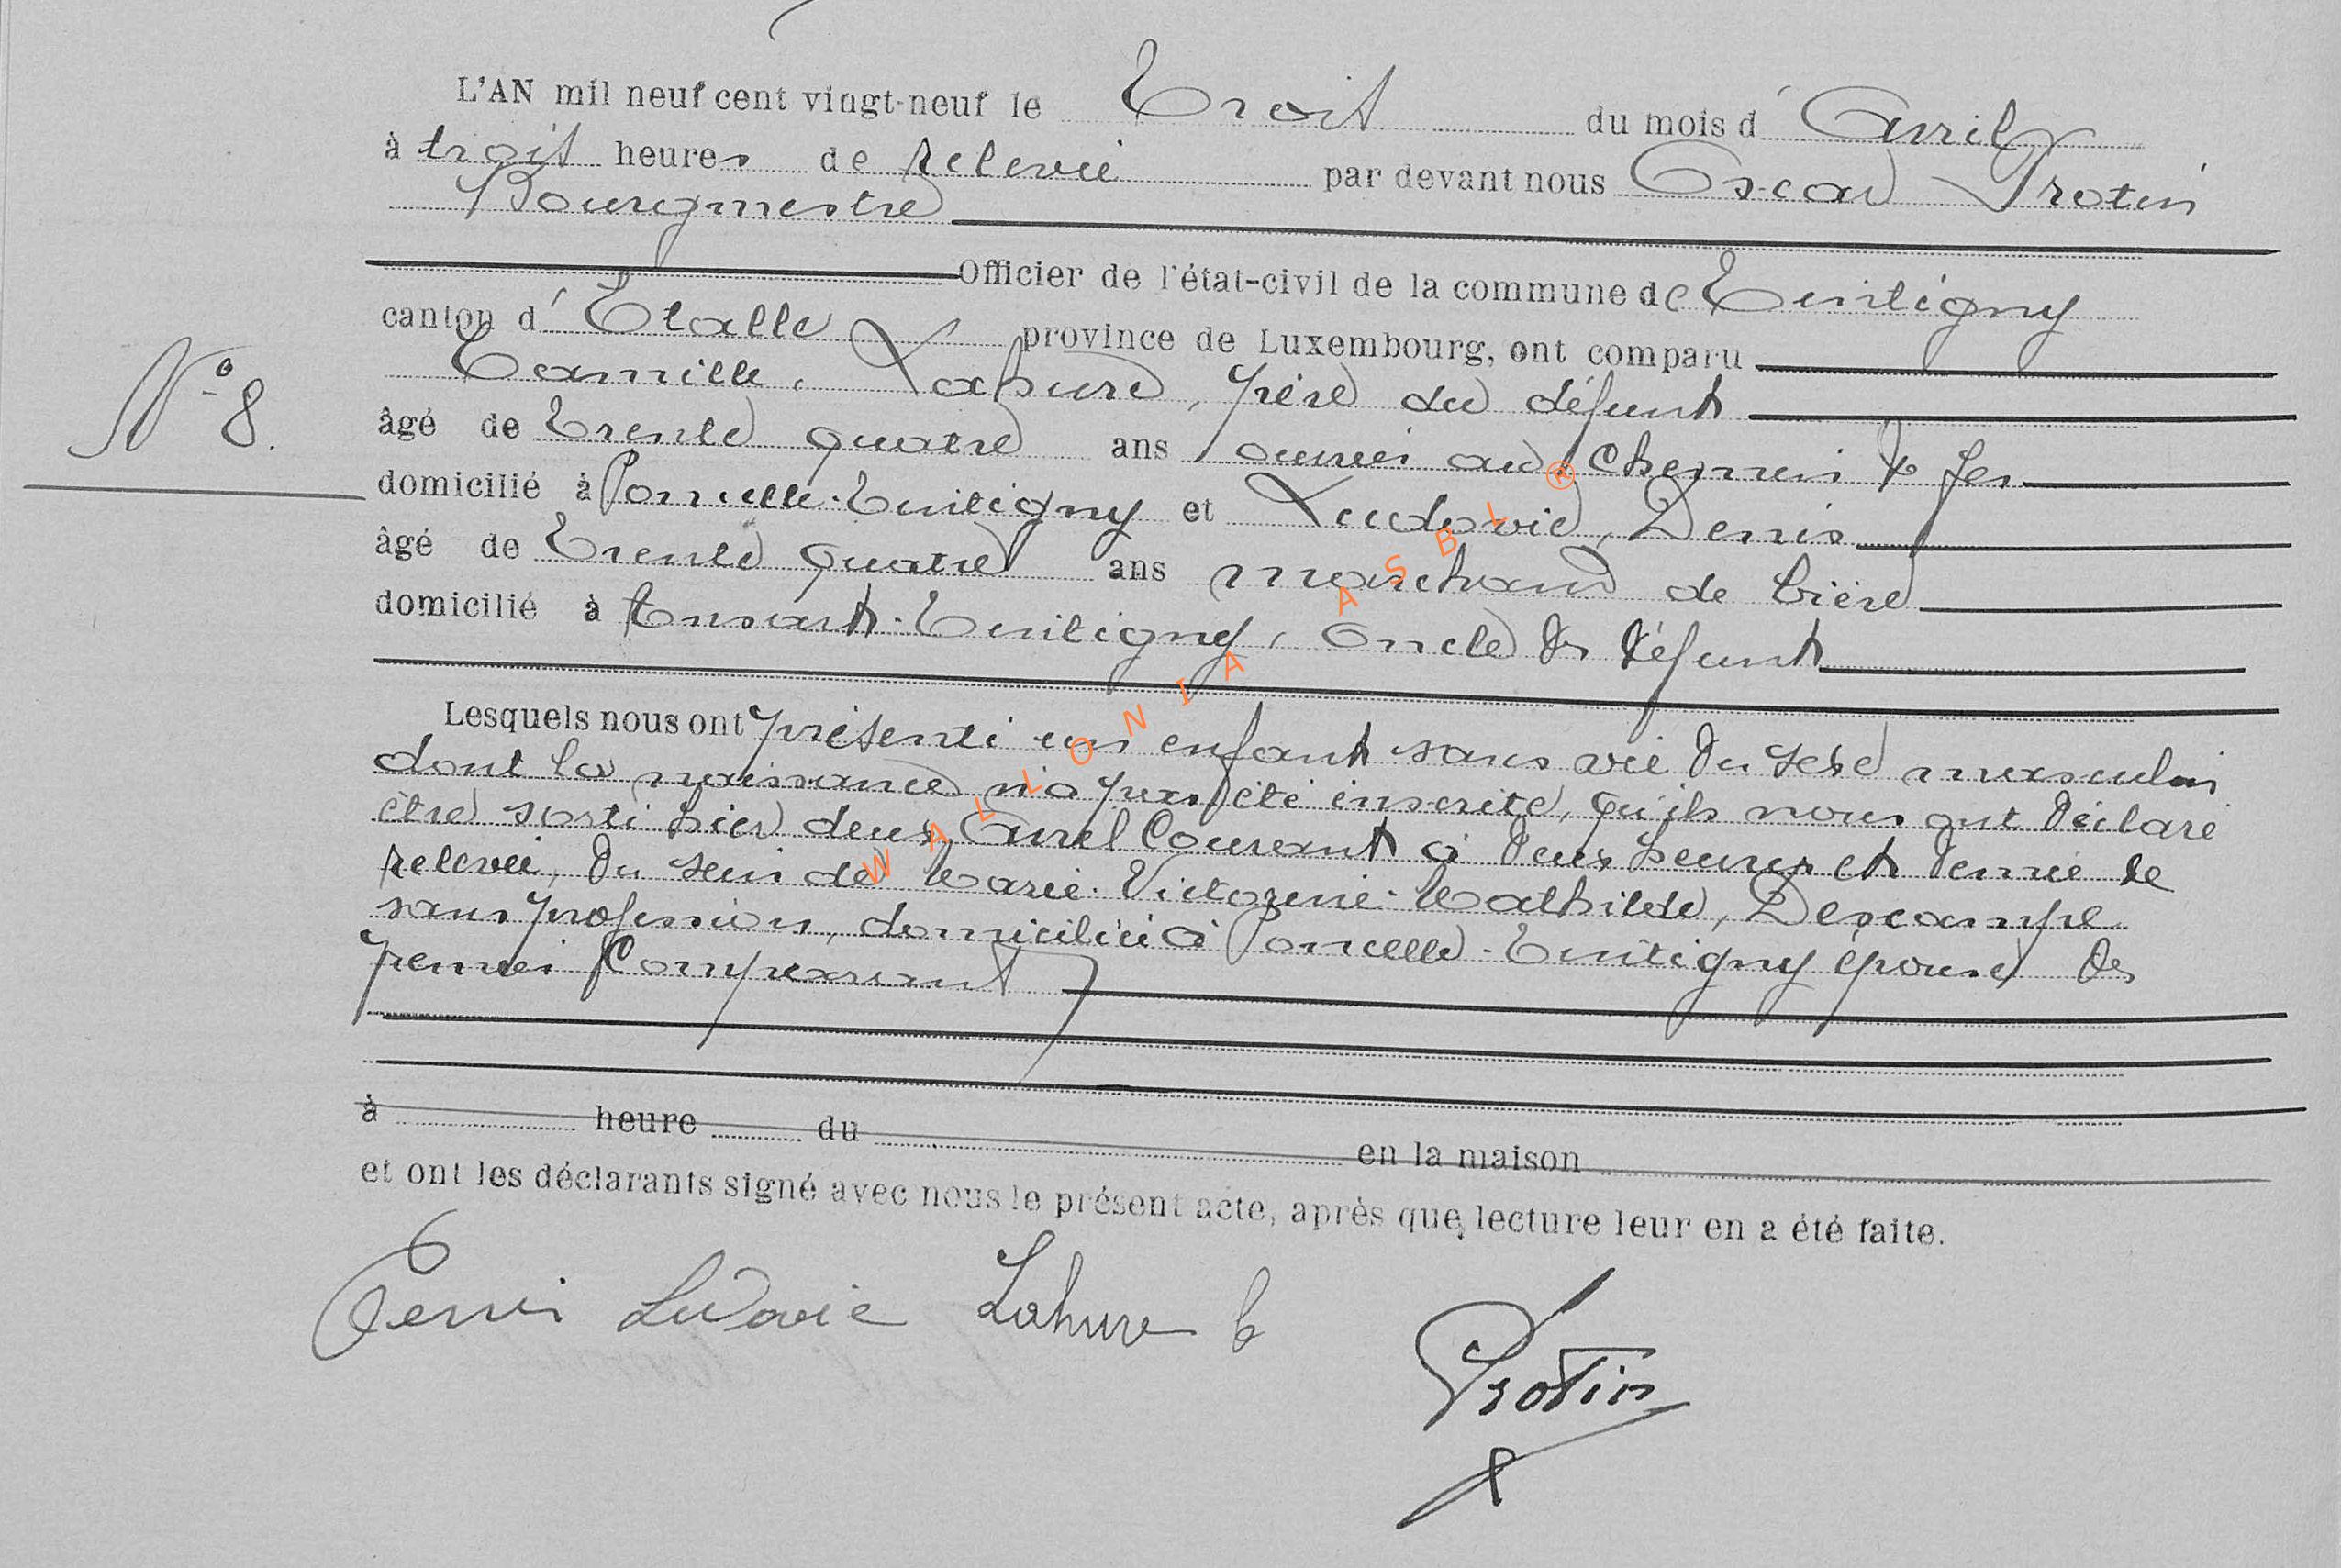 L'AN mil neuf cent vingt-neuf le Trois du mois d'Avril
à trois heures de relevée par devant nous Oscar Protin
Bourgmestre
Officier de l'état-civil de la commune de Tintigny
canton d'Etalle province de Luxembourg, ont comparu
Camille, Lahure, père du défunt
N° 8.
âgé de Trente quatre ans ouvrier au Chemin de fer
domicilié à Poncelle-Tintigny et Ludovic, Denis
âgé de Trente quatre ans marchand de bière
domicilié à Ansart-Tintigny, Oncle du défunt
Lesquels nous ont présenté un enfant sans vie du sexe masculin
dont la naissance n'a pas été inscrite, qu'ils nous ont déclaré
être sorti hier deux Avril Courant à deux heures et demie de
relevée, du sein de Marie-Victorine-Mathilde, Descampe
sans profession, domiciliée à Poncelle-Tintigny épouse du
premier Comparant
à heure du en la maison
et ont les déclarants signé avec nous le présent acte, après que lecture leur en a été faite.
Denis Ludovic Lahure C
Protin
WALLONIA ASBL ®